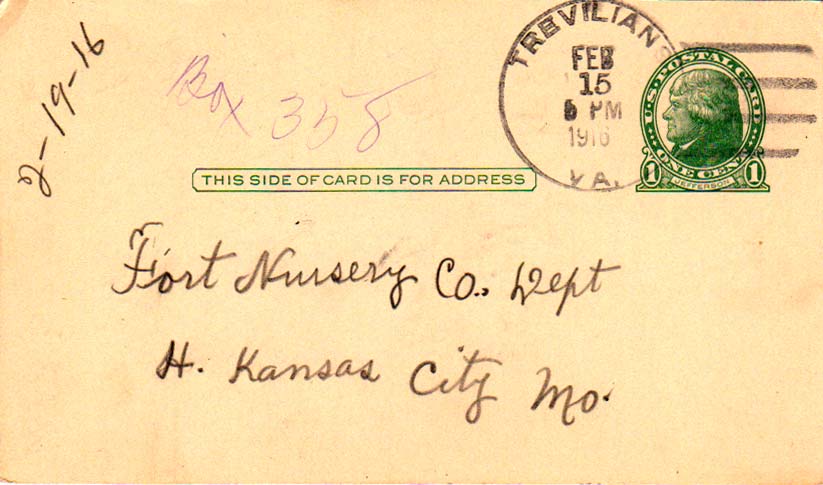 2-19-16
Box 358
TREVILIANS
FEB
15
PM
1916
VA.
U.S. POSTAL CARD
ONE CENT
1 JEFFERSON 1
THIS SIDE OF CARD IS FOR ADDRESS
Fort Nursery Co., Dept
H. Kansas City Mo.